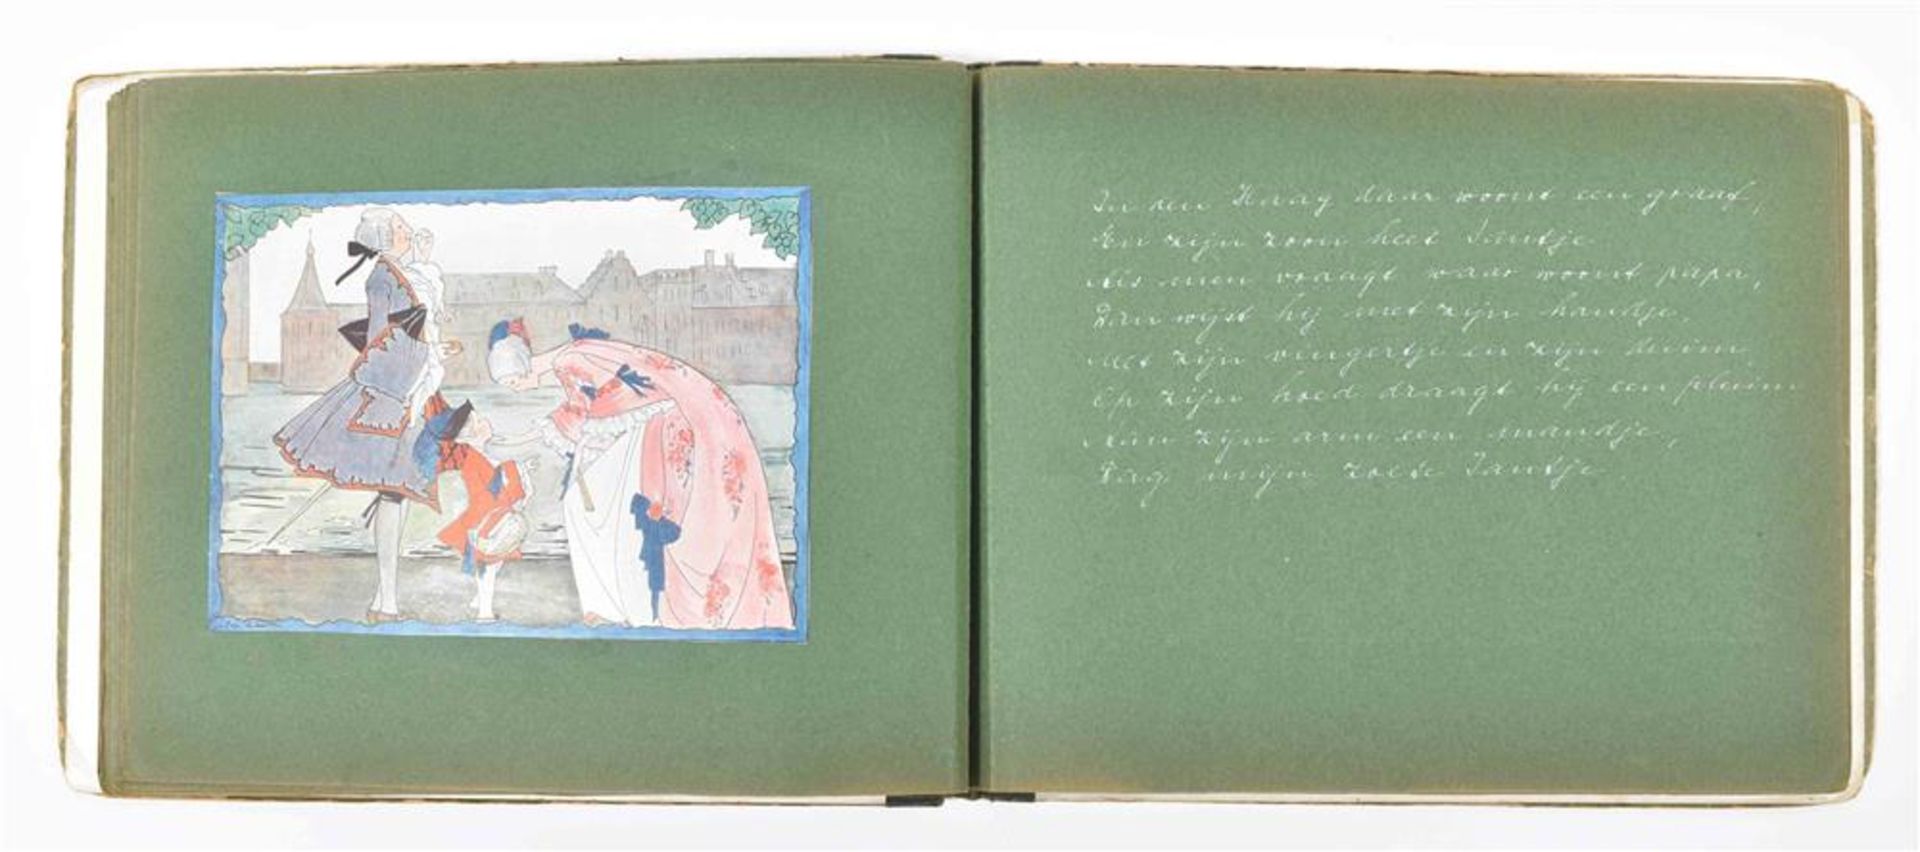 In den Haag daar woont een graaf,
En zijn zoon heet Jantje.
Als men vraagt waar woont papa,
Dan wijst hij met zijn handje.
Met zijn vingertje en zijn duim
Op zijn hoed draagt hij een pluim
Aan zijn arm een mandje,
Dag mijn zoete Jantje.